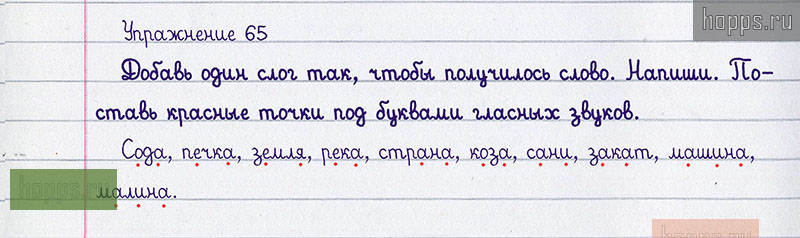 hopps.ru
Упражнение 65
Добавь один слог так, чтобы получилось слово. Напиши. По-
ставь красные точки под буквами гласных звуков.
Сода, печка, земля, река, страна, коза, сани, закат, машина,
hopps.ru
малина.
hopps.ru